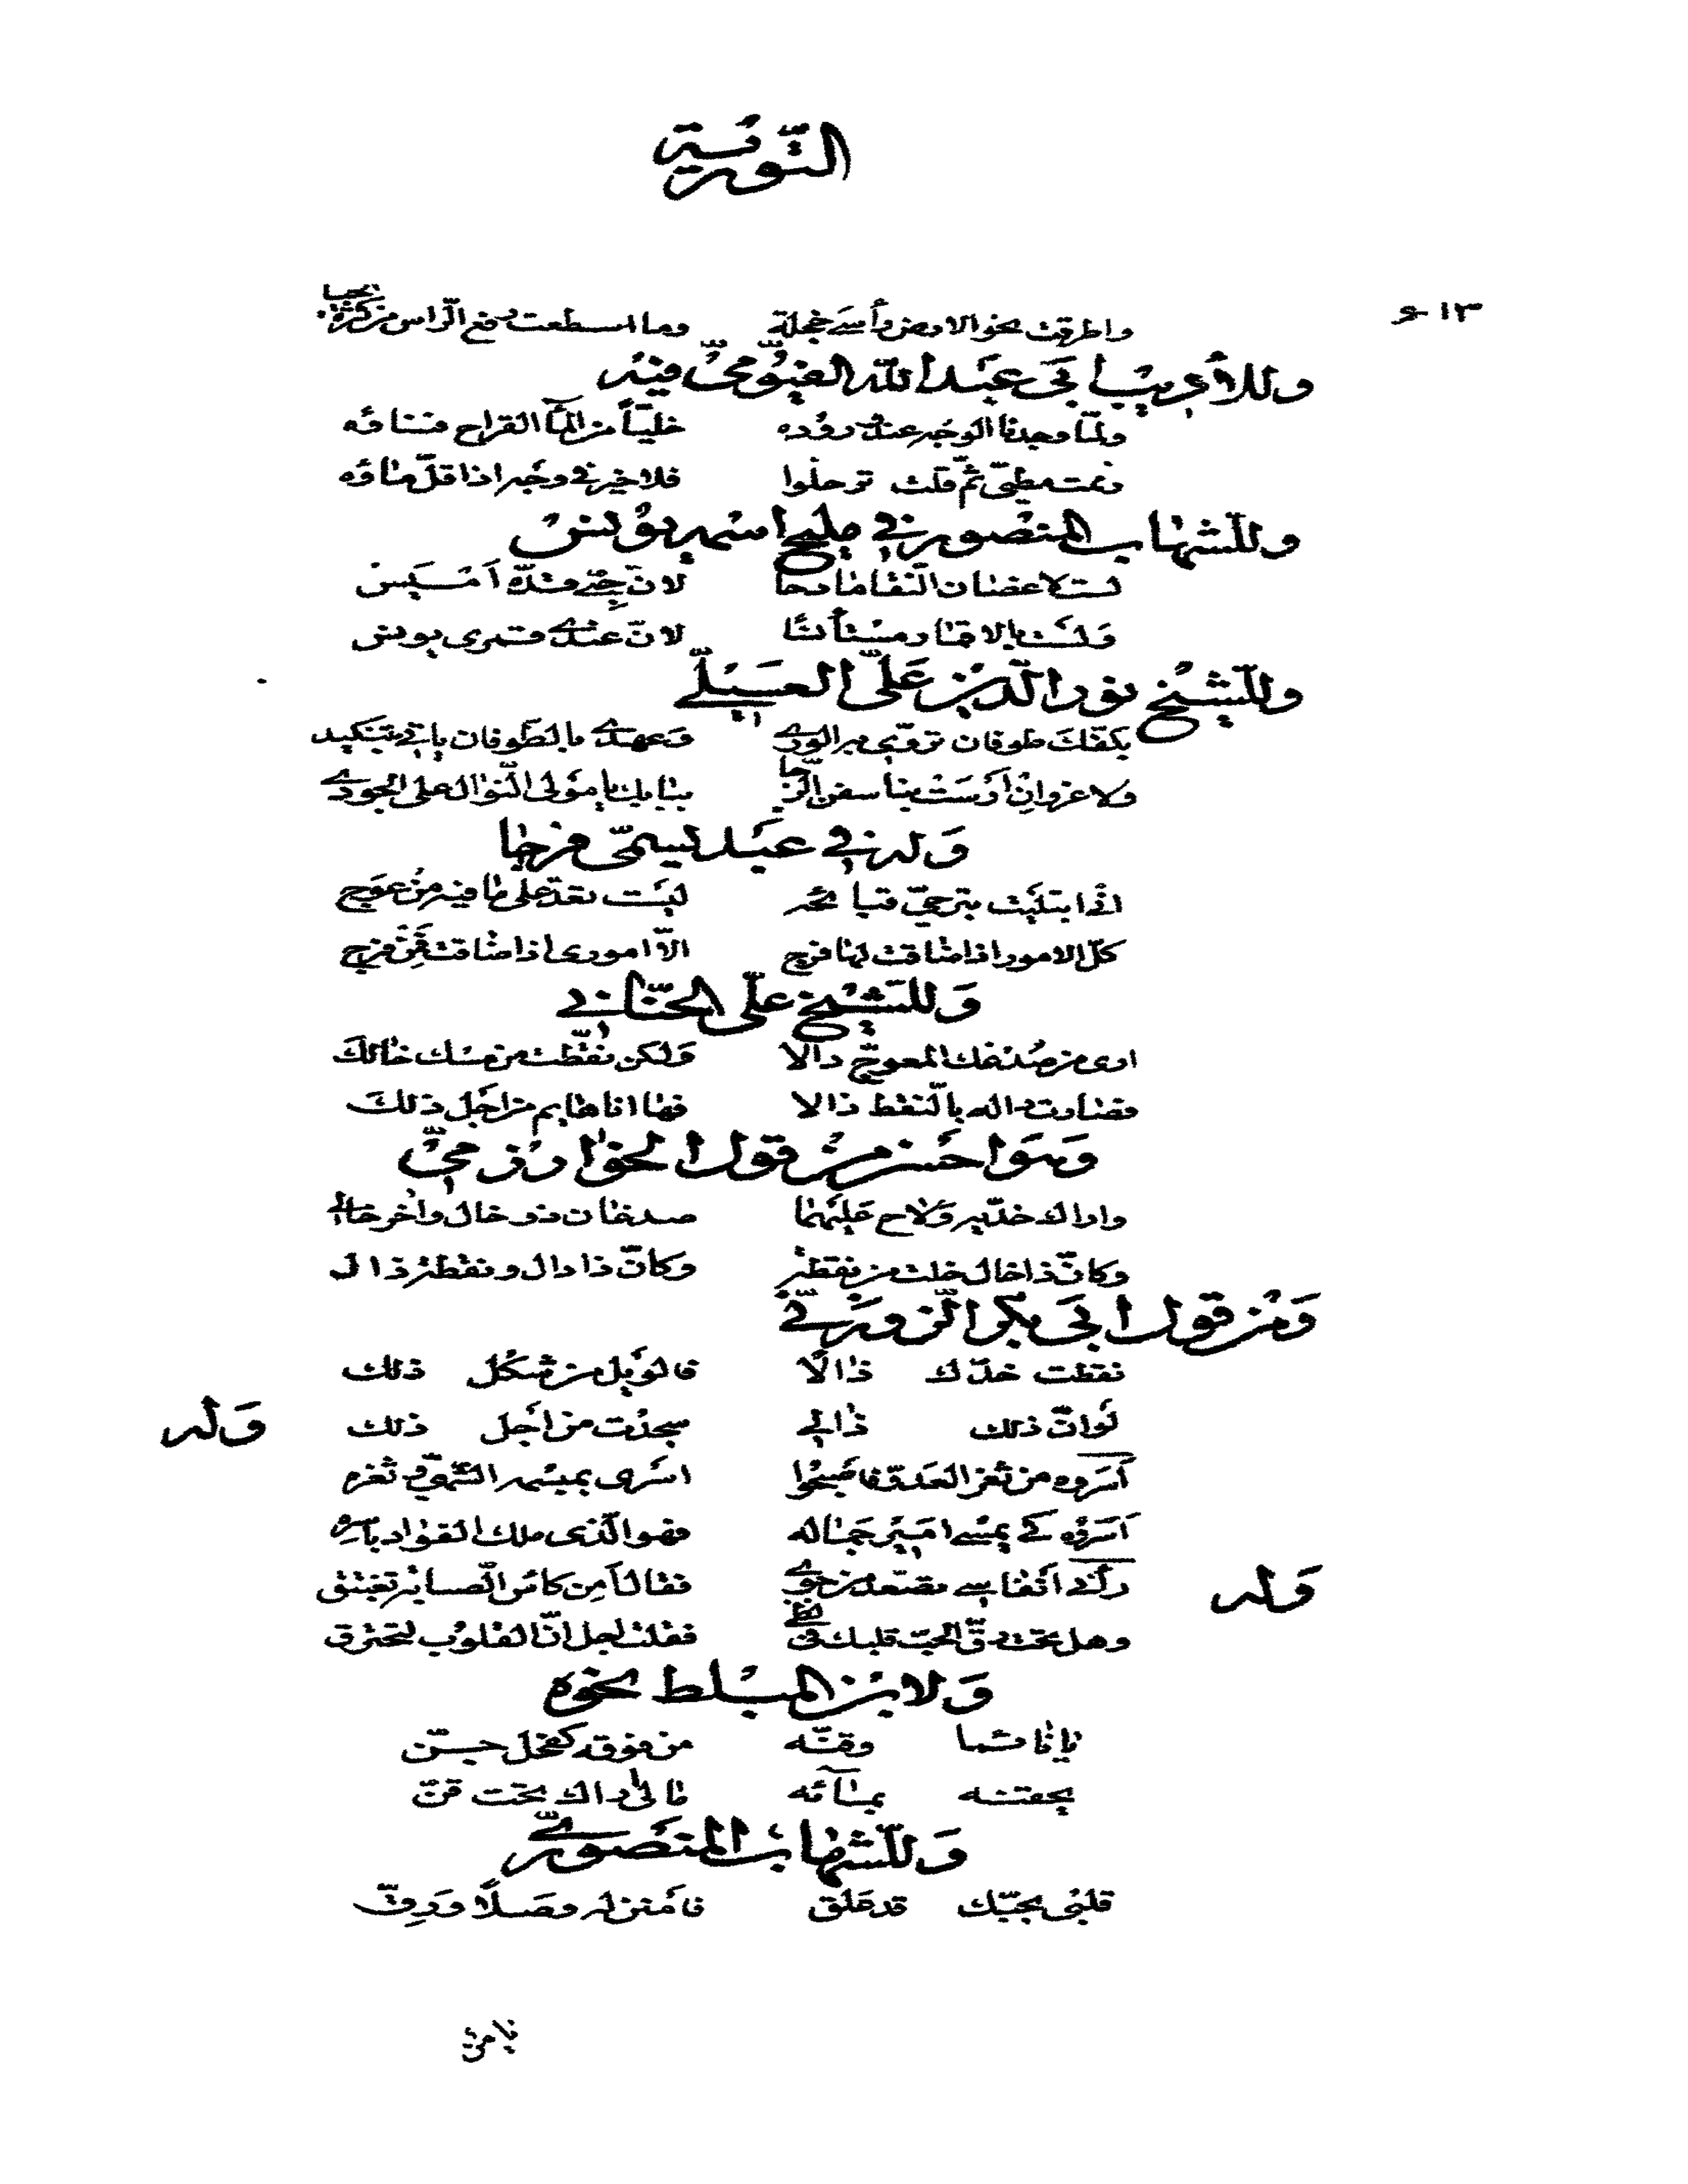 التورية
١٣ و
واطرقت نحو الارض رأسي خجلة وما اسطعت رفع الرأس من كثرة الحيا
وللأديب ابي عبد الله الفيومي فيه
ولما وجدنا الوجه عند وروده خليا من الماء القراح فناؤه
ذممت مطيي ثم قلت ترحلوا فلا خير في وجه اذا قل ماؤه
وللشهاب المنصور في مليح اسمه يونس
لست لاغصان النقا مادحا لان حبي قده اميس
ولست بالاقمار مستأنسا لان عندي قمري يونس
وللشيخ نور الدين علي العسيلي
بكفك طوفان تروى به الورى وعهدي بالطوفان يأتي بتنكيد
ولا غرو ان أرست بنا سفن الرجا ببابك يا مولى النوال على الجودي
وله في عبد يسمى فرجا
اني ابتليت بتر حي قبايحه ليست تعد على ما فيه من عوج
كل الامور اذا ضاقت لها فرج الا اموري اذا ضاقت فمن فرج
وللشيخ علي الحناني
ارى من صدغك المعوج دالا ولكن نقطت من مسك خالك
فصارت داله بالنقط ذالا فها انا هايم من اجل ذلك
وهو احسن من قول الخوارزمي
واراك خديه ولاح عليهما صدغان ذو خال وآخر خالي
وكان ذا خال خلت من نقطة وكان ذا دال ونقطة ذال
ومن قول ابي بكر الزورقي
نقطت خدك ذالا فالويل من شكل ذلك
لو ان ذلك ذا لي سجدت من اجل ذلك
وله
أسروه من ثغر العدو فاصبحوا اسرى بمبسمه الشهي وثغره
أسروه كي يمسي امير جماله فهو الذي ملك الفؤاد بأسره
وله
رأى انفاسي تصعد من جوى فقال أمن كاس الصبابة تغتبق
وهل تحت رق الحب قلبك في لظى فقلت اجل ان القلوب لتحترق
ولابن المبلط نحوه
يا نا شما وقته من فوقه كفخل حسن
بجفتنه بمسآئه ما لي اراك تحت قن
وللشهاب المنصوري
قلبي بحبك قد علق فامنن له وصلا ورق
يا من